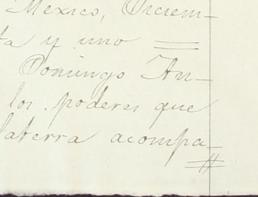 Mexico, Diciem-
ta y uno =
Domingo An-
los poderes que
laterra acompa-